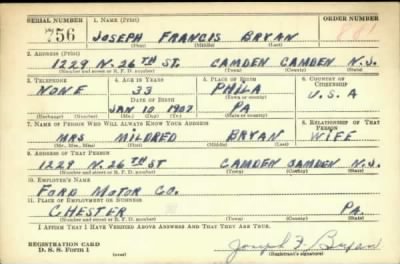 SERIAL NUMBER 1. NAME (Print) ORDER NUMBER
756 JOSEPH FRANCIS BRYAN 881
(First) (Middle) (Last)
2. ADDRESS (Print)
1229 N. 26TH ST. CAMDEN CAMDEN N.J.
(Number and street or R. F. D. number) (Town) (County) (State)
3. TELEPHONE 4. AGE IN YEARS 5. PLACE OF BIRTH 6. COUNTRY OF CITIZENSHIP
NONE 33 PHILA U.S.A
DATE OF BIRTH (Town or county)
JAN 10 1907 PA
(Exchange) (Number) (Mo.) (Day) (Yr.) (State or country)
7. NAME OF PERSON WHO WILL ALWAYS KNOW YOUR ADDRESS 8. RELATIONSHIP OF THAT PERSON
MRS MILDRED BRYAN WIFE
(Mr., Mrs., Miss) (First) (Middle) (Last)
9. ADDRESS OF THAT PERSON
1229 N. 26TH ST CAMDEN CAMDEN N.J.
(Number and street or R. F. D. number) (Town) (County) (State)
10. EMPLOYER'S NAME
FORD MOTOR CO.
11. PLACE OF EMPLOYMENT OR BUSINESS
CHESTER PA.
(Number and street or R. F. D. number) (Town) (County) (State)
I AFFIRM THAT I HAVE VERIFIED ABOVE ANSWERS AND THAT THEY ARE TRUE.
REGISTRATION CARD
D. S. S. Form 1 (over) Joseph F. Bryan
(Registrant's signature)